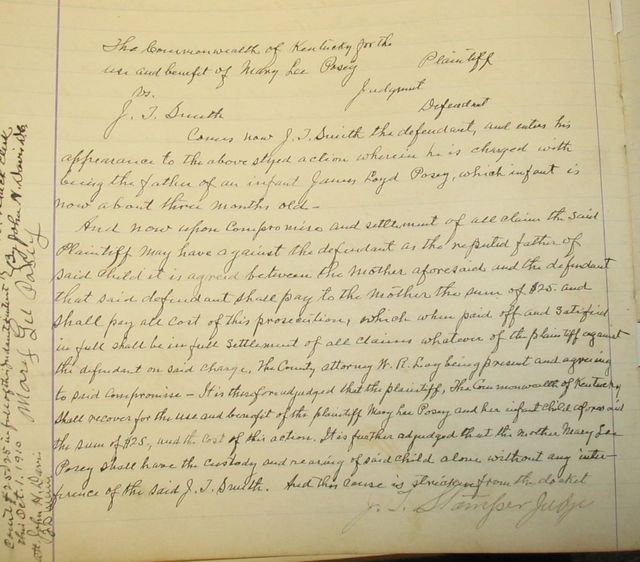 The Commonwealth of Kentucky for the
use and benefit of Mary Lee Posey Plaintiff
vs. Judgment
J. T. Smith Defendant
Comes now J. T. Smith the defendant, and enters his
appearance to the above styed action wherein he is charged with
being the father of an infant James Loyd Posey, which infant is
now about three months old—
And now upon compromise and settlement of all claim the said
Plaintiff may have against the defendant as the reputed father of
said child it is agreed between the Mother aforesaid and the defendant
that said defendant shall pay to the Mother the sum of $25. and
shall pay all cost of this prosecution, which when paid off and satisfied
in full shall be in full settlement of all claims whatever of the plaintiff against
the defendant on said charge, The County attorney W. R. Lay being present and agreeing
to said compromise — It is therefore adjudged that the plaintiff, The Commonwealth of Kentucky
shall recover for the use and benefit of the plaintiff Mary Lee Posey and her infant child aforesaid
the sum of $25, and the cost of this action. It is further adjudged that the mother Mary Lee
Posey shall have the custody and rearing of said child alone without any inter-
ference of the said J. T. Smith. And this cause is stricken from the docket
J. T. Stamper Judge
Mary Lee Posey
By John H. Davis D.C.
this Oct. 1. 1910
att John H. Davis